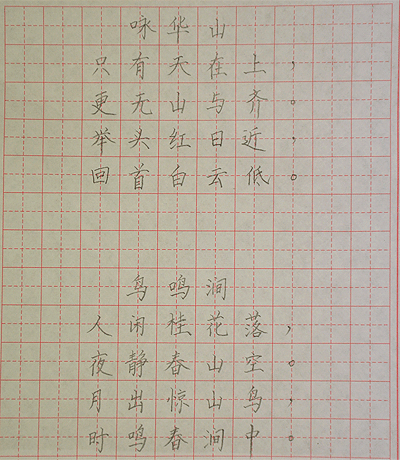 咏华山
只有天在上，
更无山与齐。
举头红日近，
回首白云低。
鸟鸣涧
人闲桂花落，
夜静春山空。
月出惊山鸟，
时鸣春涧中。